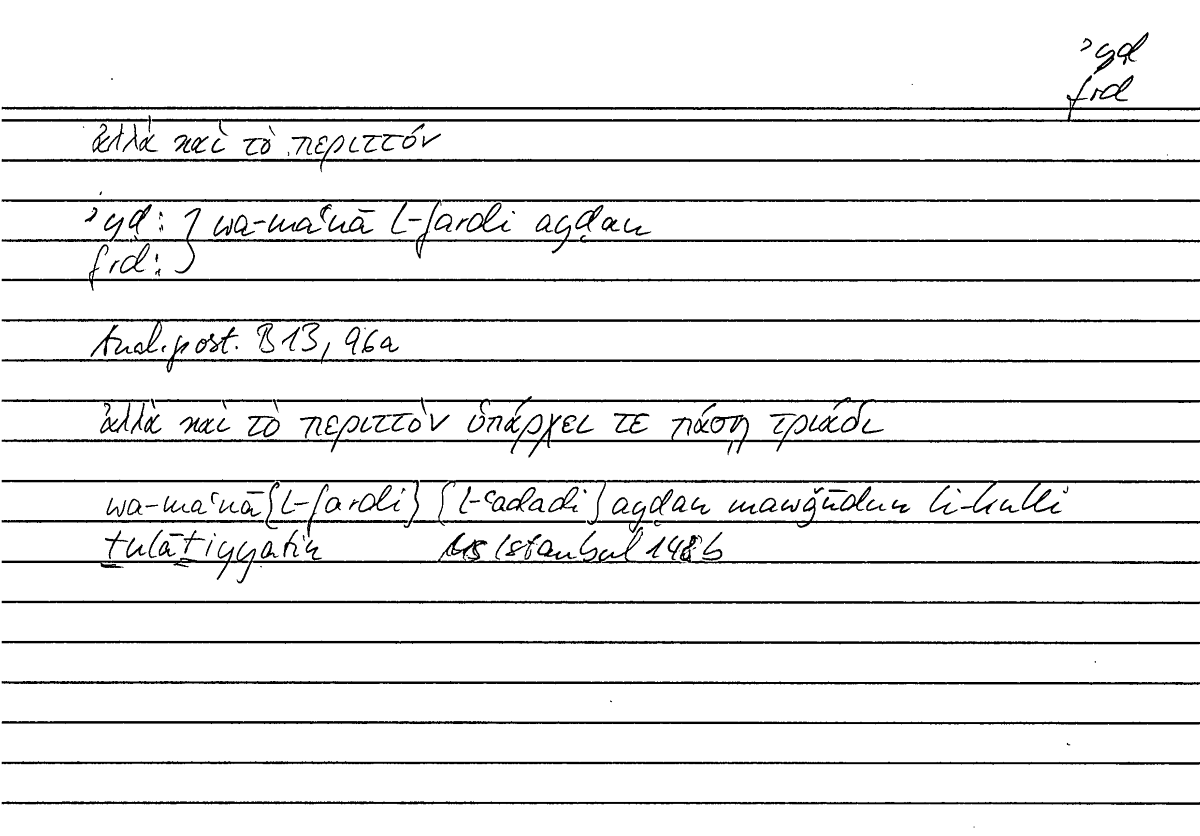 ʾyḍ
frd
ἀλλὰ καὶ τὸ περιττόν
ʾyḍ: } wa-maʿnā l-fardi ayḍan
frd: }
Anal. post. B 13, 96a
ἀλλὰ καὶ τὸ περιττὸν ὑπάρχει τε πάσῃ τριάδι
wa-maʿnā {l-fardi} {l-ʿadadi} ayḍan mawǧūdun li-kulli
ṯulāṯiyyatin Ms Istanbul 148b